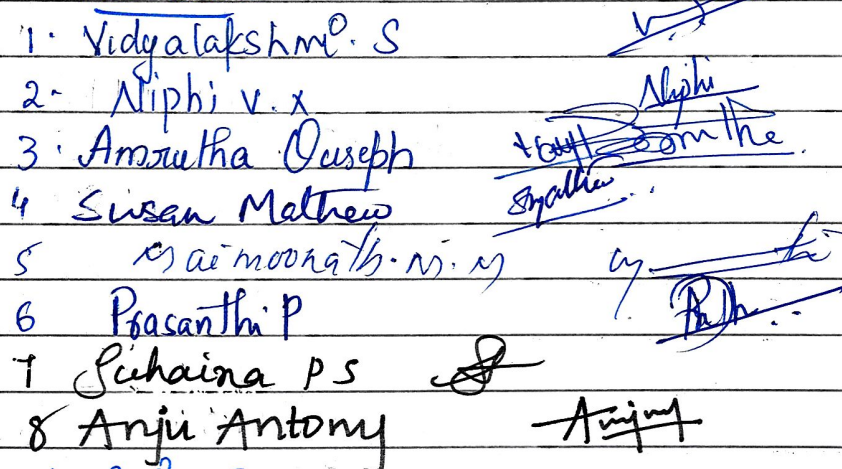 1. Vidyalakshmi. S
2- Niphi V. X Niphi
3. Amrutha Ouseph
4 Susan Mathew
5 Maimoonath. M. M
6 Prasanthi P
7 Suhaina P S
8 Anju Antony Anjuy